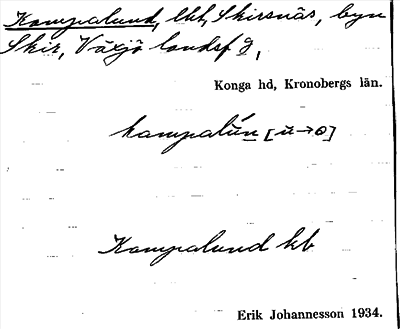 Kampalund, lht, Skirsnäs, byn
Skir, Växjö landsf g,
Konga hd, Kronobergs län.
kampalún [u→o]
Kampalund kb
Erik Johannesson 1934.